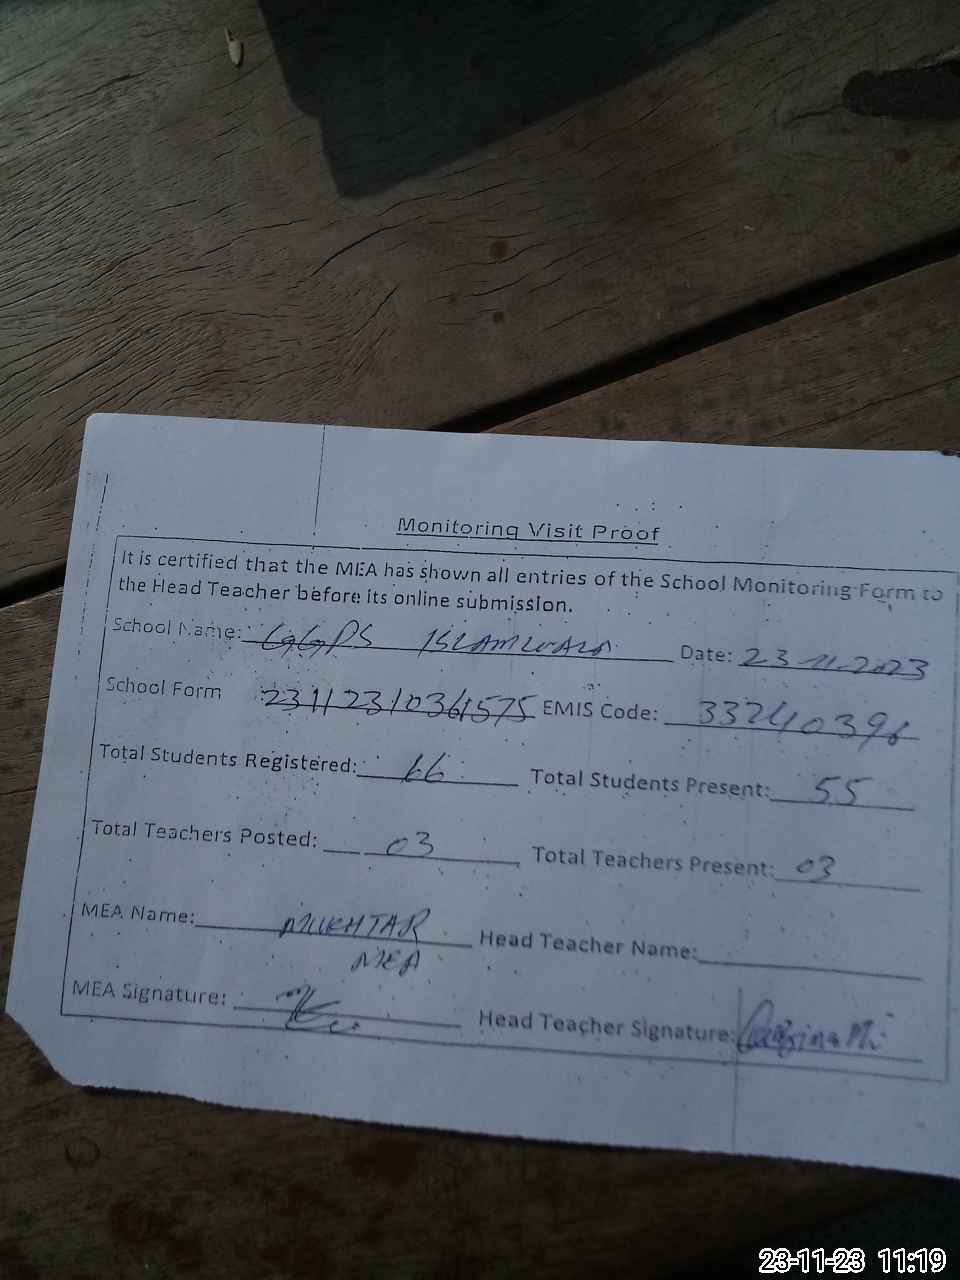 Monitoring Visit Proof
It is certified that the MEA has shown all entries of the School Monitoring Form to
the Head Teacher before its online submission.
School Name: GGPS ISLAMWALA Date: 23-11-2023
School Form 23112310361575 EMIS Code: 33240396
Total Students Registered: 66 Total Students Present: 55
Total Teachers Posted: 03 Total Teachers Present: 03
MEA Name: MUKHTAR Head Teacher Name:
MEA
MEA Signature: Head Teacher Signature:
23-11-23 11:19